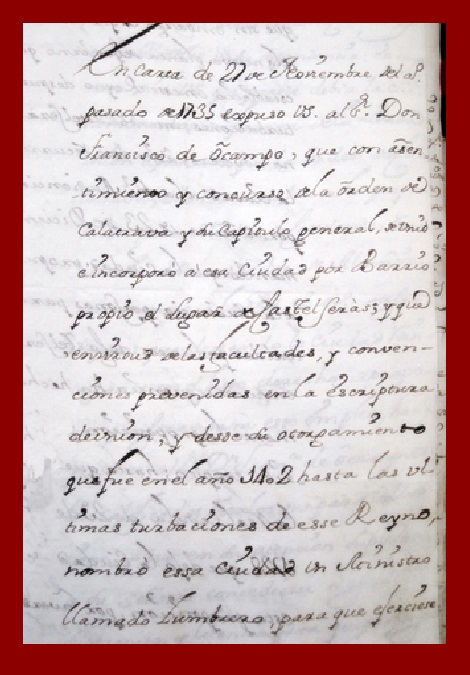 En Carta de 27 de Noviembre del a.º
pasado de 1735 expuso VS. al S.r Don
Francisco de Ocampo, que con asen-
timiento y concurso de la órden de
Calatrava y su Capitulo general, se unió
e incorporó à esa Ciudad por Barrio
propio el Lugar de Castelseràs; y que
en virtud de las facultades, y conven-
ciones prevenidas en la escriptura
de union, y desde su otorgamiento
que fue en el año 1402 hasta las vl-
timas turbaciones de esse Reyno,
nombró essa Ciudad un Ministro
llamado Zumbrero, para que exerciese